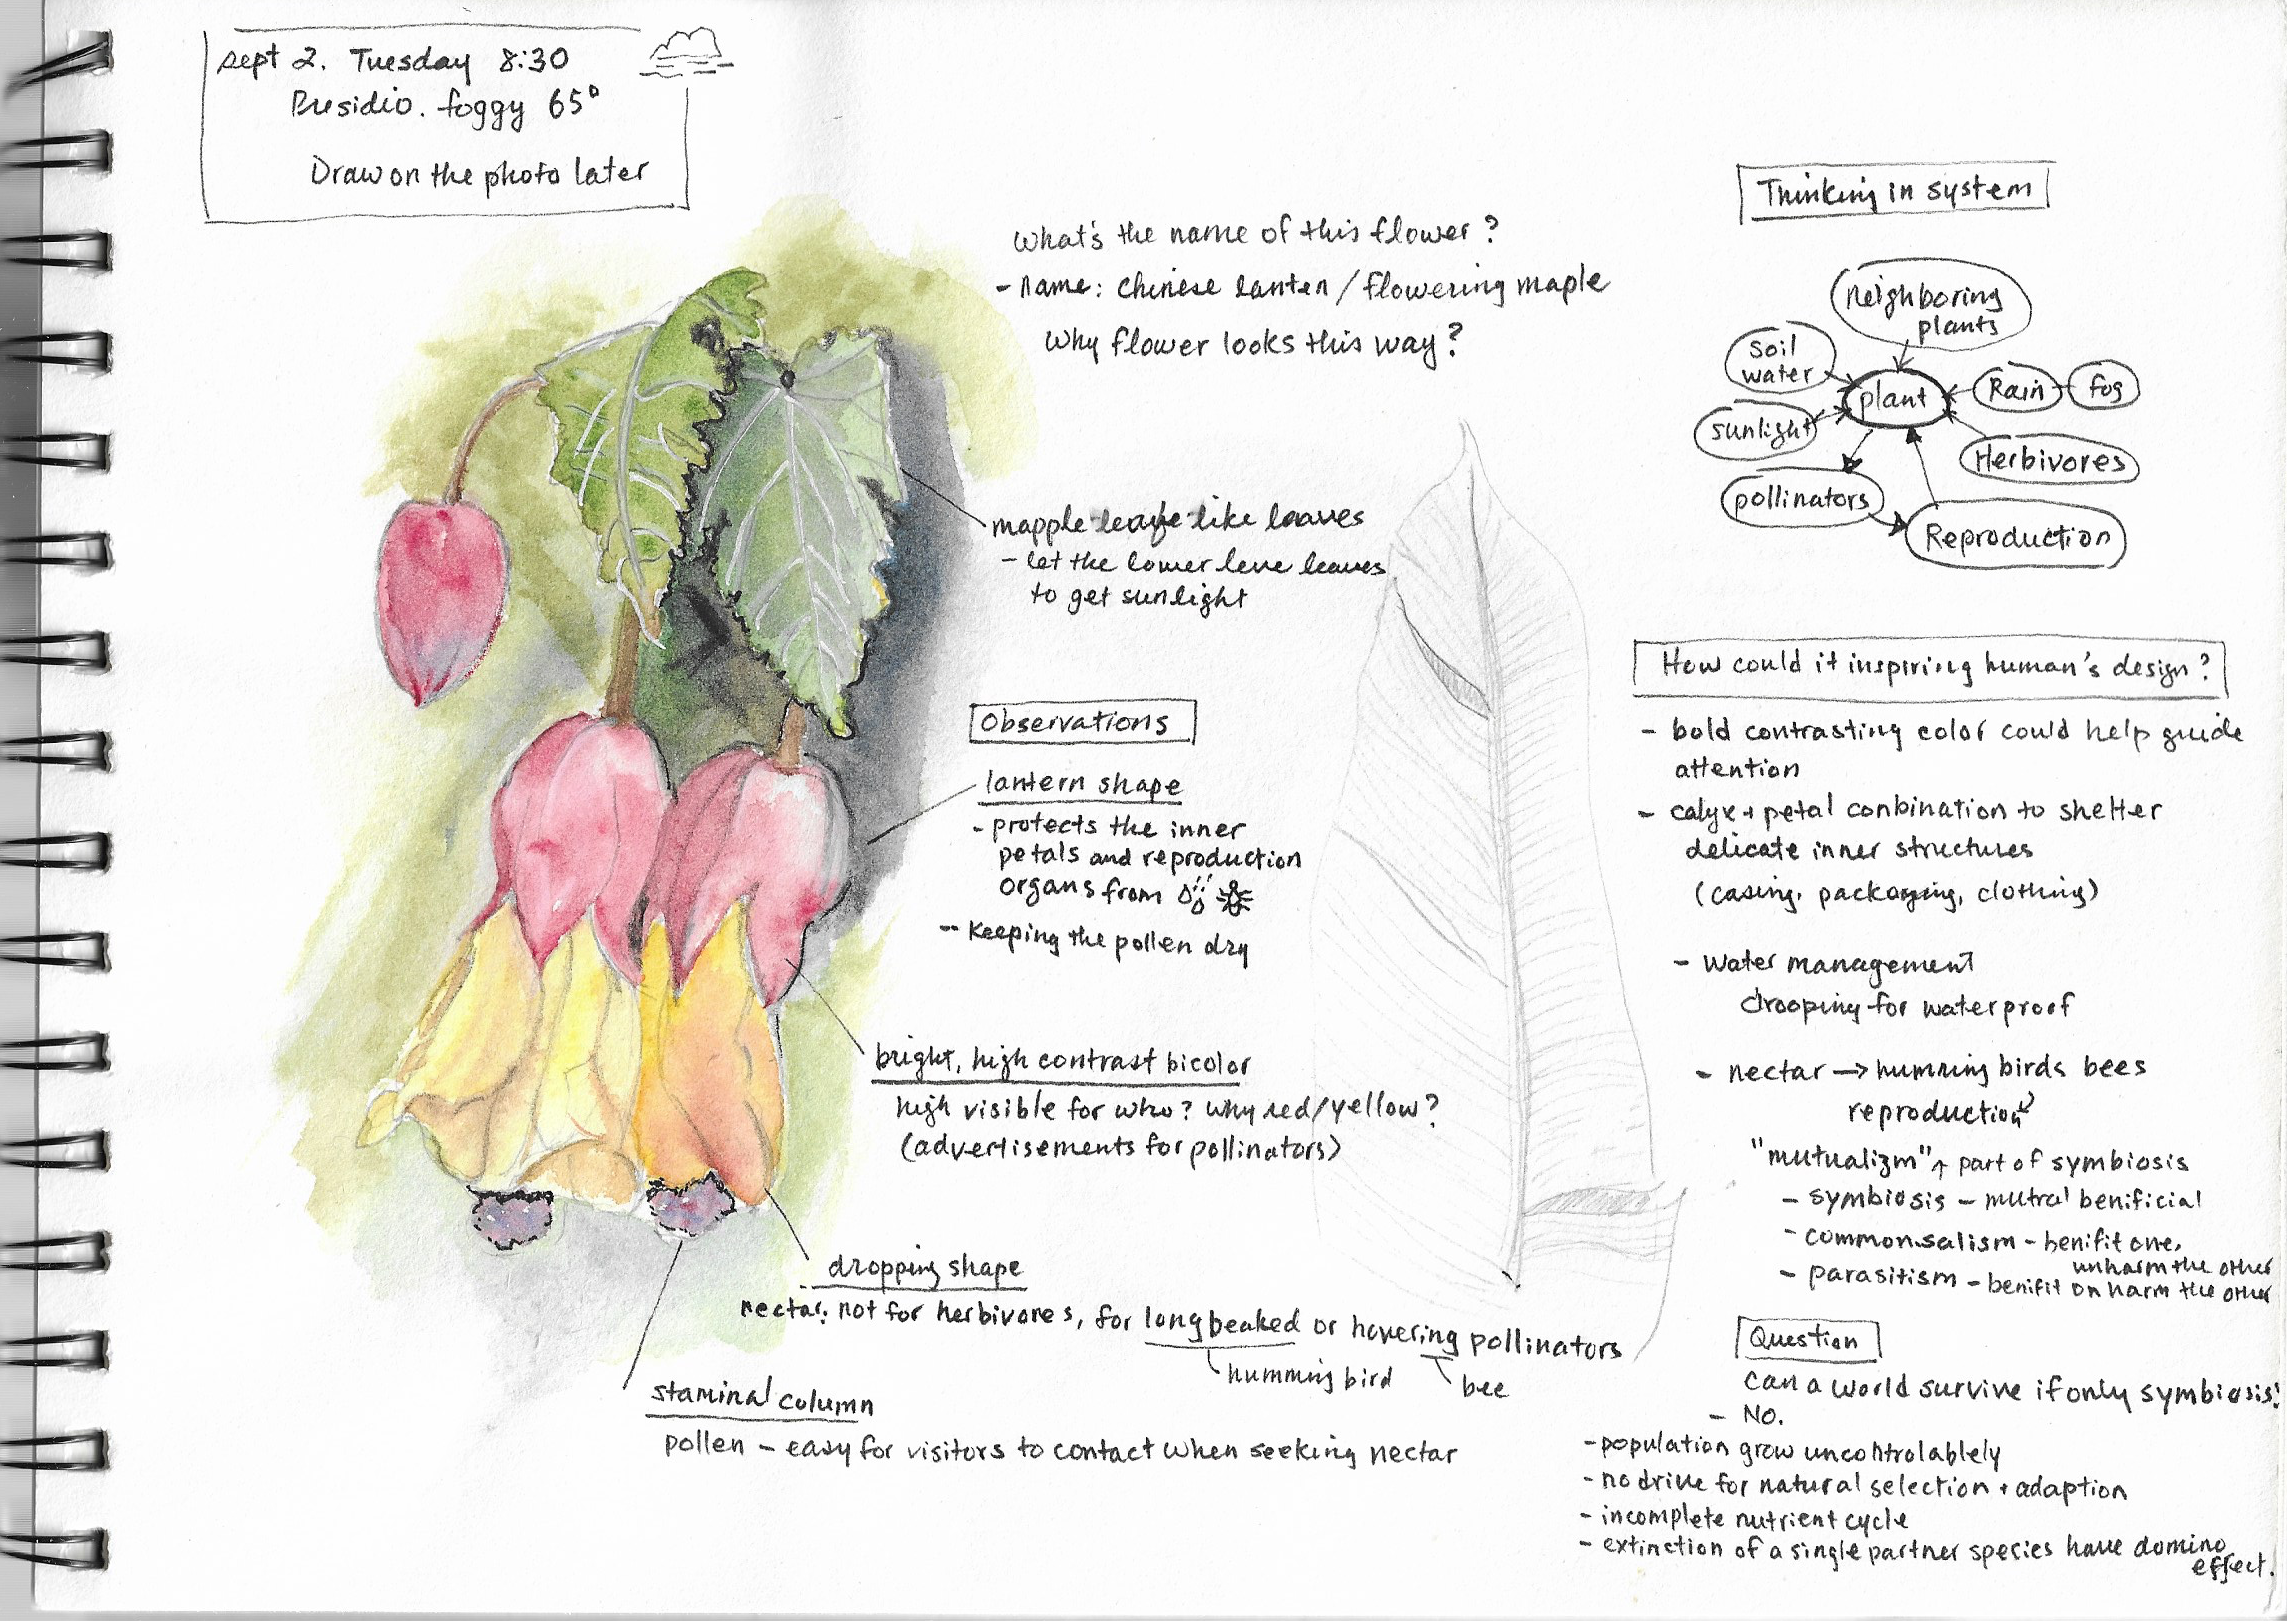 sept 2. Tuesday 8:30
Presidio. foggy 65°
Draw on the photo later
What's the name of this flower?
- Name: Chinese lanten / flowering maple
Why flower looks this way?
mapple leafe like leaves
- let the lower leve leaves
to get sunlight
Observations
lantern shape
- protects the inner
petals and reproduction
organs from
- Keeping the pollen dry
bright, high contrast bicolor
high visible for who? why red/yellow?
(advertisements for pollinators)
dropping shape
nectar: not for herbivores, for long beaked or hovering pollinators
humming bird
bee
staminal column
pollen - easy for visitors to contact when seeking nectar
Thinking in system
Neighboring
plants
soil
water
plant
Rain
fog
sunlight
Herbivores
pollinators
Reproduction
How could it inspiring human's design?
- bold contrasting color could help guide
attention
- calyx + petal conbination to shelter
delicate inner structures
(casing, packaging, clothing)
- Water management
drooping for waterproof
- nectar → humming birds bees
reproduction
"mutualizm" ↑ part of symbiosis
- symbiosis - mutral benificial
- commonsalism - benifit one,
unharm the other
- parasitism - benifit on harm the other
Question
Can a world survive if only symbiosis?
- No.
- population grow uncontrolablely
- no drive for natural selection + adaption
- incomplete nutrient cycle
- extinction of a single partner species have domino
effect.